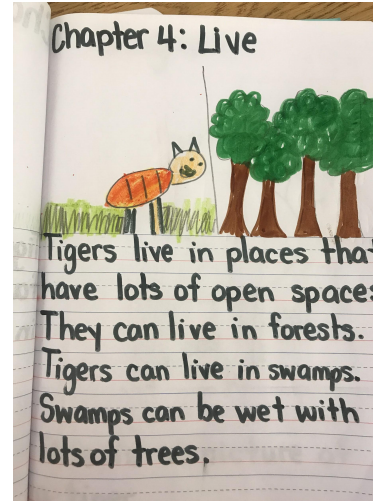 Chapter 4: Live
Tigers live in places that
have lots of open space
They can live in forests.
Tigers can live in swamps.
Swamps can be wet with
lots of trees.